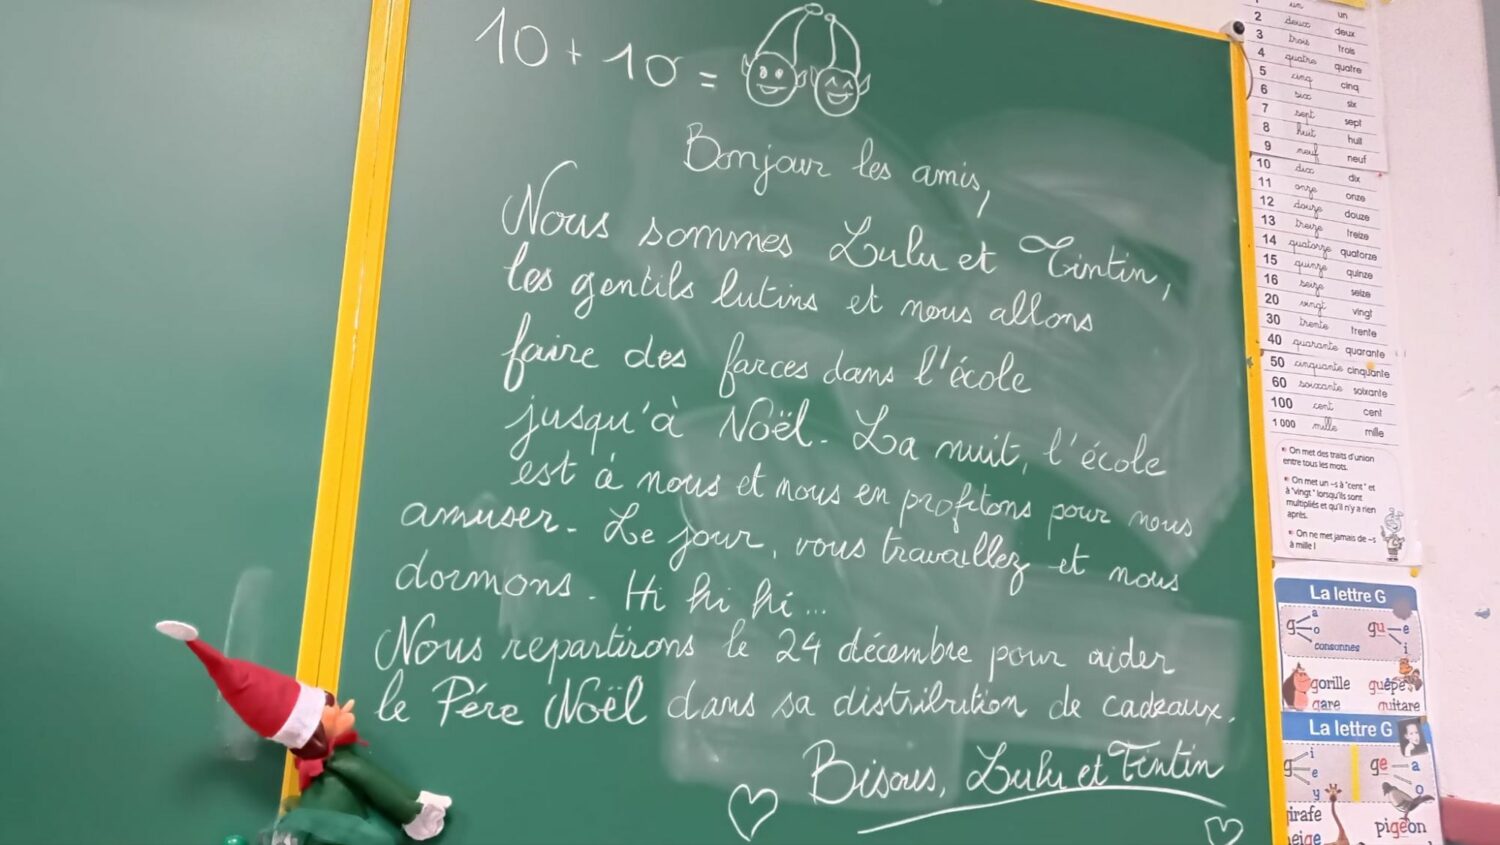 10 + 10 =
Bonjour les amis,
Nous sommes Lulu et Tintin,
les gentils lutins et nous allons
faire des farces dans l'école
jusqu'à Noël. La nuit, l'école
est à nous et nous en profitons pour nous
amuser. Le jour, vous travaillez et nous
dormons. Hi hi hi...
Nous repartirons le 24 décembre pour aider
le Père Noël dans sa distribution de cadeaux.
Bisous, Lulu et Tintin
un un
2 deux deux
3 trois trois
4 quatre quatre
5 cinq cinq
6 six six
7 sept sept
8 huit huit
9 neuf neuf
10 dix dix
11 onze onze
12 douze douze
13 treize treize
14 quatorze quatorze
15 quinze quinze
16 seize seize
20 vingt vingt
30 trente trente
40 quarante quarante
50 cinquante cinquante
60 soixante soixante
100 cent cent
1 000 mille mille
On met des traits d'union
entre tous les mots.
On met un -s à "cent" et
à "vingt" lorsqu'ils sont
multipliés et qu'il n'y a rien
après.
On ne met jamais de -s
à mille !
La lettre G
g a o consonnes
gu e i
gorille guêpe
gare guitare
La lettre G
g i e y
ge a o
girafe
neige pigeon